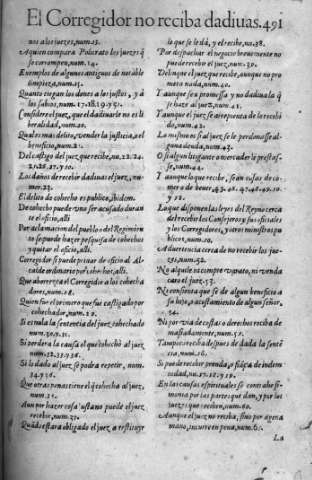 El Corregidor no reciba dadiuas. 491
nos a los juezes, num. 13.
A quien compara Policrato los juezes q̃
se corrompen, num. 14.
Exemplos de algunos antiguos de notable
limpieza, num. 15.
Quanto ciegan los dones a los justos, y à
los sabios, num. 17. 18. 19. y 51.
Considere el juez, que el dadiuarle no es li
beralidad, num. 20.
Qual es mas delito, vender la justicia, o el
beneficio, num. 21.
Del castigo del juez que recibe, nu. 22. 24.
25. 26. 27. y 30.
Los daños de recebir dadiuas el juez, nu-
mer. 23.
El delito de cohecho es publico, ibidem.
De cohecho puede vno ser acusado duran
te el oficio, alli
Por aclamacion del pueblo o del Regimien
to se puede hazer pesquisa de cohechos
y quitar el oficio, alli.
Corregidor si puede priuar de oficio al Al-
calde ordinario por cohechos, alli.
Que aborrezca el Corregidor a los cohecha
dores, num. 28.
Quien fue el primero que fue castigado por
cohechador, num. 29.
Si es nula la sentencia del juez cohechado
num. 30. y 31.
Si perdera la causa el que cohechò al juez
num. 32. 33. y 36.
Si lo dado al juez se podra repetir, num.
34. y 36.
Que otras penas tiene el q̃ cohecha al juez,
num. 35.
Aun por hazer cosa justa no puede el juez
recebir, num. 37.
Quãdo estara obligado el juez a restituyr
lo que se le dà, y el recibe, nu. 38.
Por despachar el negocio breuemente no
puede recebir el juez, num. 39.
Delinque el juez que recibe, aunque no pro
meta nada, num. 40.
Y aunque sea promessa y no dadiua la q̃
se haze al juez, num. 41.
Y aunque el juez se arrepienta de lo recebi
do, num. 42.
Lo mismo es si al juez se le perdonasse al-
guna deuda, num. 43.
O si algun litigante o mercader le prestas-
se, num. 44.
Y aunque lo que recibe, sean cosas de co-
mer o de beuer, 45. 46. 47. 48. 49. 50.
y 51.
Lo que disponen las leyes del Reyno cerca
del recebir los Consejeros y sus oficiales
y los Corregidores, y otros ministros pu
blicos, num. 50.
Aduertencia cerca de no recebir los jue-
zes, num. 52.
No alquile ni compre varato, ni venda
caro el juez, 53.
No consienta que se dè algun beneficio a
su hijo, o acostamiento de algun señor,
54.
Ni por via de costas o derechos reciba de
masiadamente, num. 57.
Tampoco reciba despues de dada la sentē
cia, num. 56.
Si puede recebir prenda, o fiãça de indem
nidad, nu. 57. 58. y 59.
En las causas espirituales se comete si-
monia por las partes que dan, y por los
juezes que reciben, num. 60.
Aunque el juez no reciba, sino por agena
mano, incurre en pena, num. 61.
La